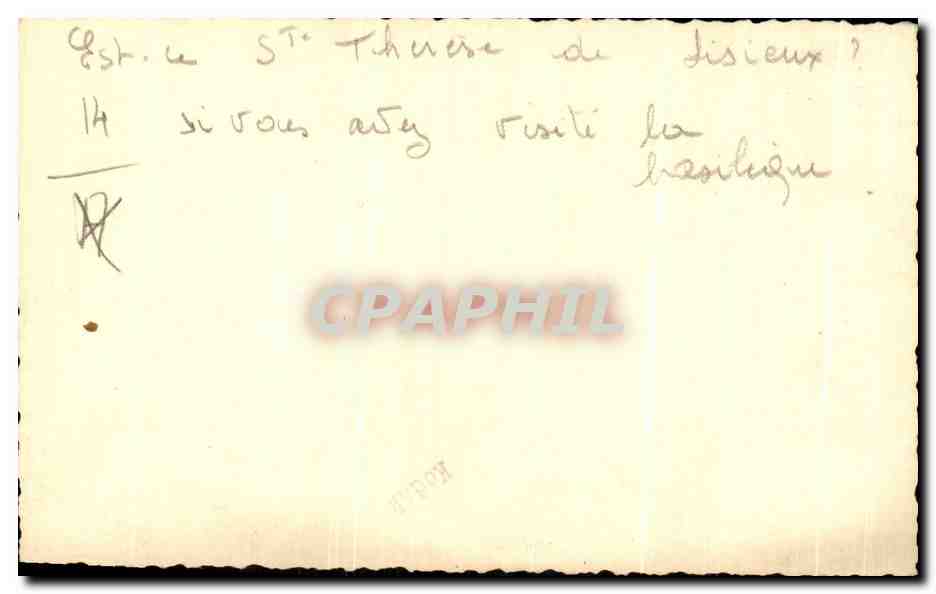 Est-ce Ste Therese de Lisieux ?
14 si vous avez visité la
basilique.
CPAPHIL
Kodak